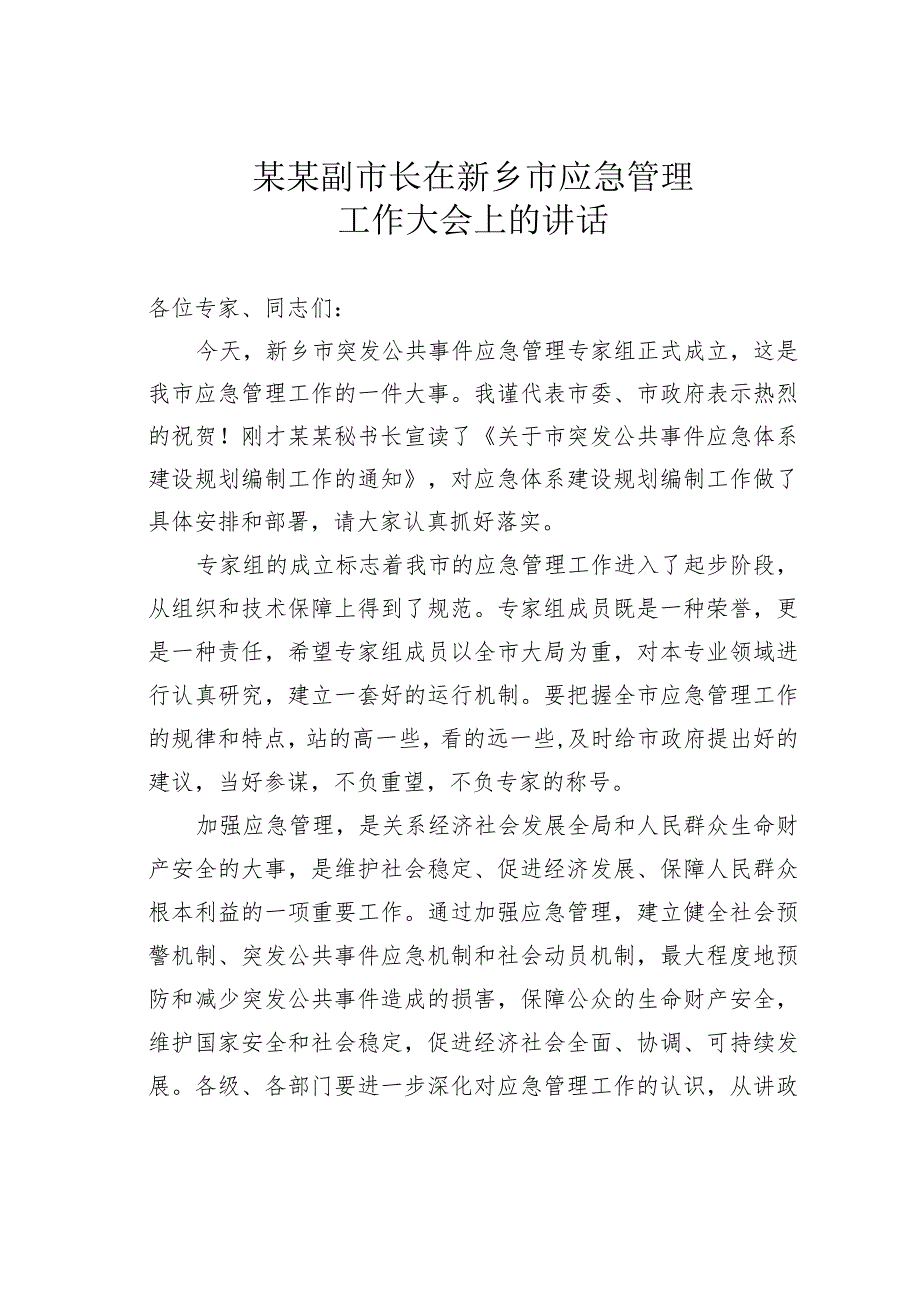 某某副市长在新乡市应急管理
工作大会上的讲话
各位专家、同志们：
今天，新乡市突发公共事件应急管理专家组正式成立，这是
我市应急管理工作的一件大事。我谨代表市委、市政府表示热烈
的祝贺！刚才某某秘书长宣读了《关于市突发公共事件应急体系
建设规划编制工作的通知》，对应急体系建设规划编制工作做了
具体安排和部署，请大家认真抓好落实。
专家组的成立标志着我市的应急管理工作进入了起步阶段，
从组织和技术保障上得到了规范。专家组成员既是一种荣誉，更
是一种责任，希望专家组成员以全市大局为重，对本专业领域进
行认真研究，建立一套好的运行机制。要把握全市应急管理工作
的规律和特点，站的高一些，看的远一些,及时给市政府提出好的
建议，当好参谋，不负重望，不负专家的称号。
加强应急管理，是关系经济社会发展全局和人民群众生命财
产安全的大事，是维护社会稳定、促进经济发展、保障人民群众
根本利益的一项重要工作。通过加强应急管理，建立健全社会预
警机制、突发公共事件应急机制和社会动员机制，最大程度地预
防和减少突发公共事件造成的损害，保障公众的生命财产安全，
维护国家安全和社会稳定，促进经济社会全面、协调、可持续发
展。各级、各部门要进一步深化对应急管理工作的认识，从讲政